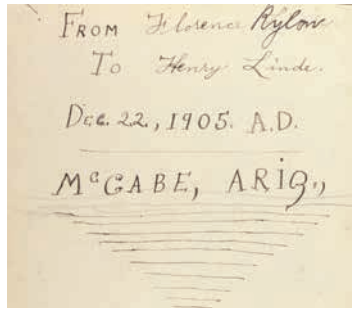 FROM Florence Rylow
To Henry Linde.
Dec. 22., 1905. A.D.
McCABE, ARIZ.,